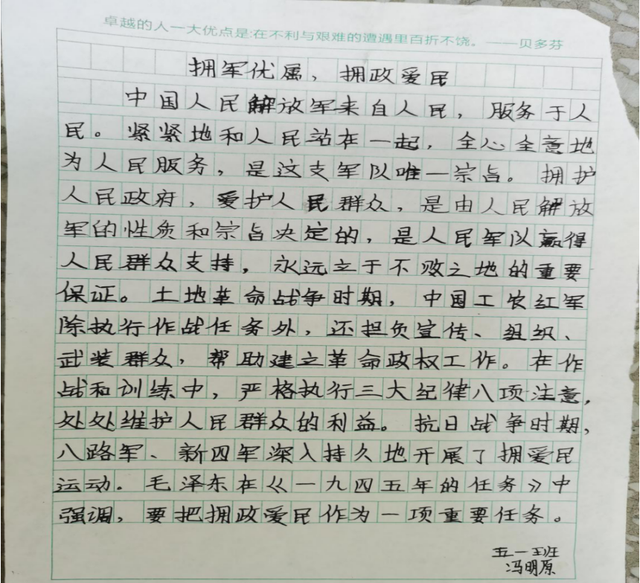 卓越的人一大优点是:在不利与艰难的遭遇里百折不饶。——贝多芬
拥军优属，拥政爱民
中国人民解放军来自人民，服务于人
民。紧紧地和人民站在一起，全心全意地
为人民服务，是这支军队唯一宗旨。拥护
人民政府，爱护人民群众，是由人民解放
军的性质和宗旨决定的，是人民军队赢得
人民群众支持，永远立于不败之地的重要
保证。土地革命战争时期，中国工农红军
除执行作战任务外，还担负宣传、组织、
武装群众，帮助建立革命政权工作。在作
战和训练中，严格执行三大纪律八项注意，
处处维护人民群众的利益。抗日战争时期，
八路军、新四军深入持久地开展了拥爱民
运动。毛泽东在《一九四五年的任务》中
强调，要把拥政爱民作为一项重要任务。
五一班
冯明原